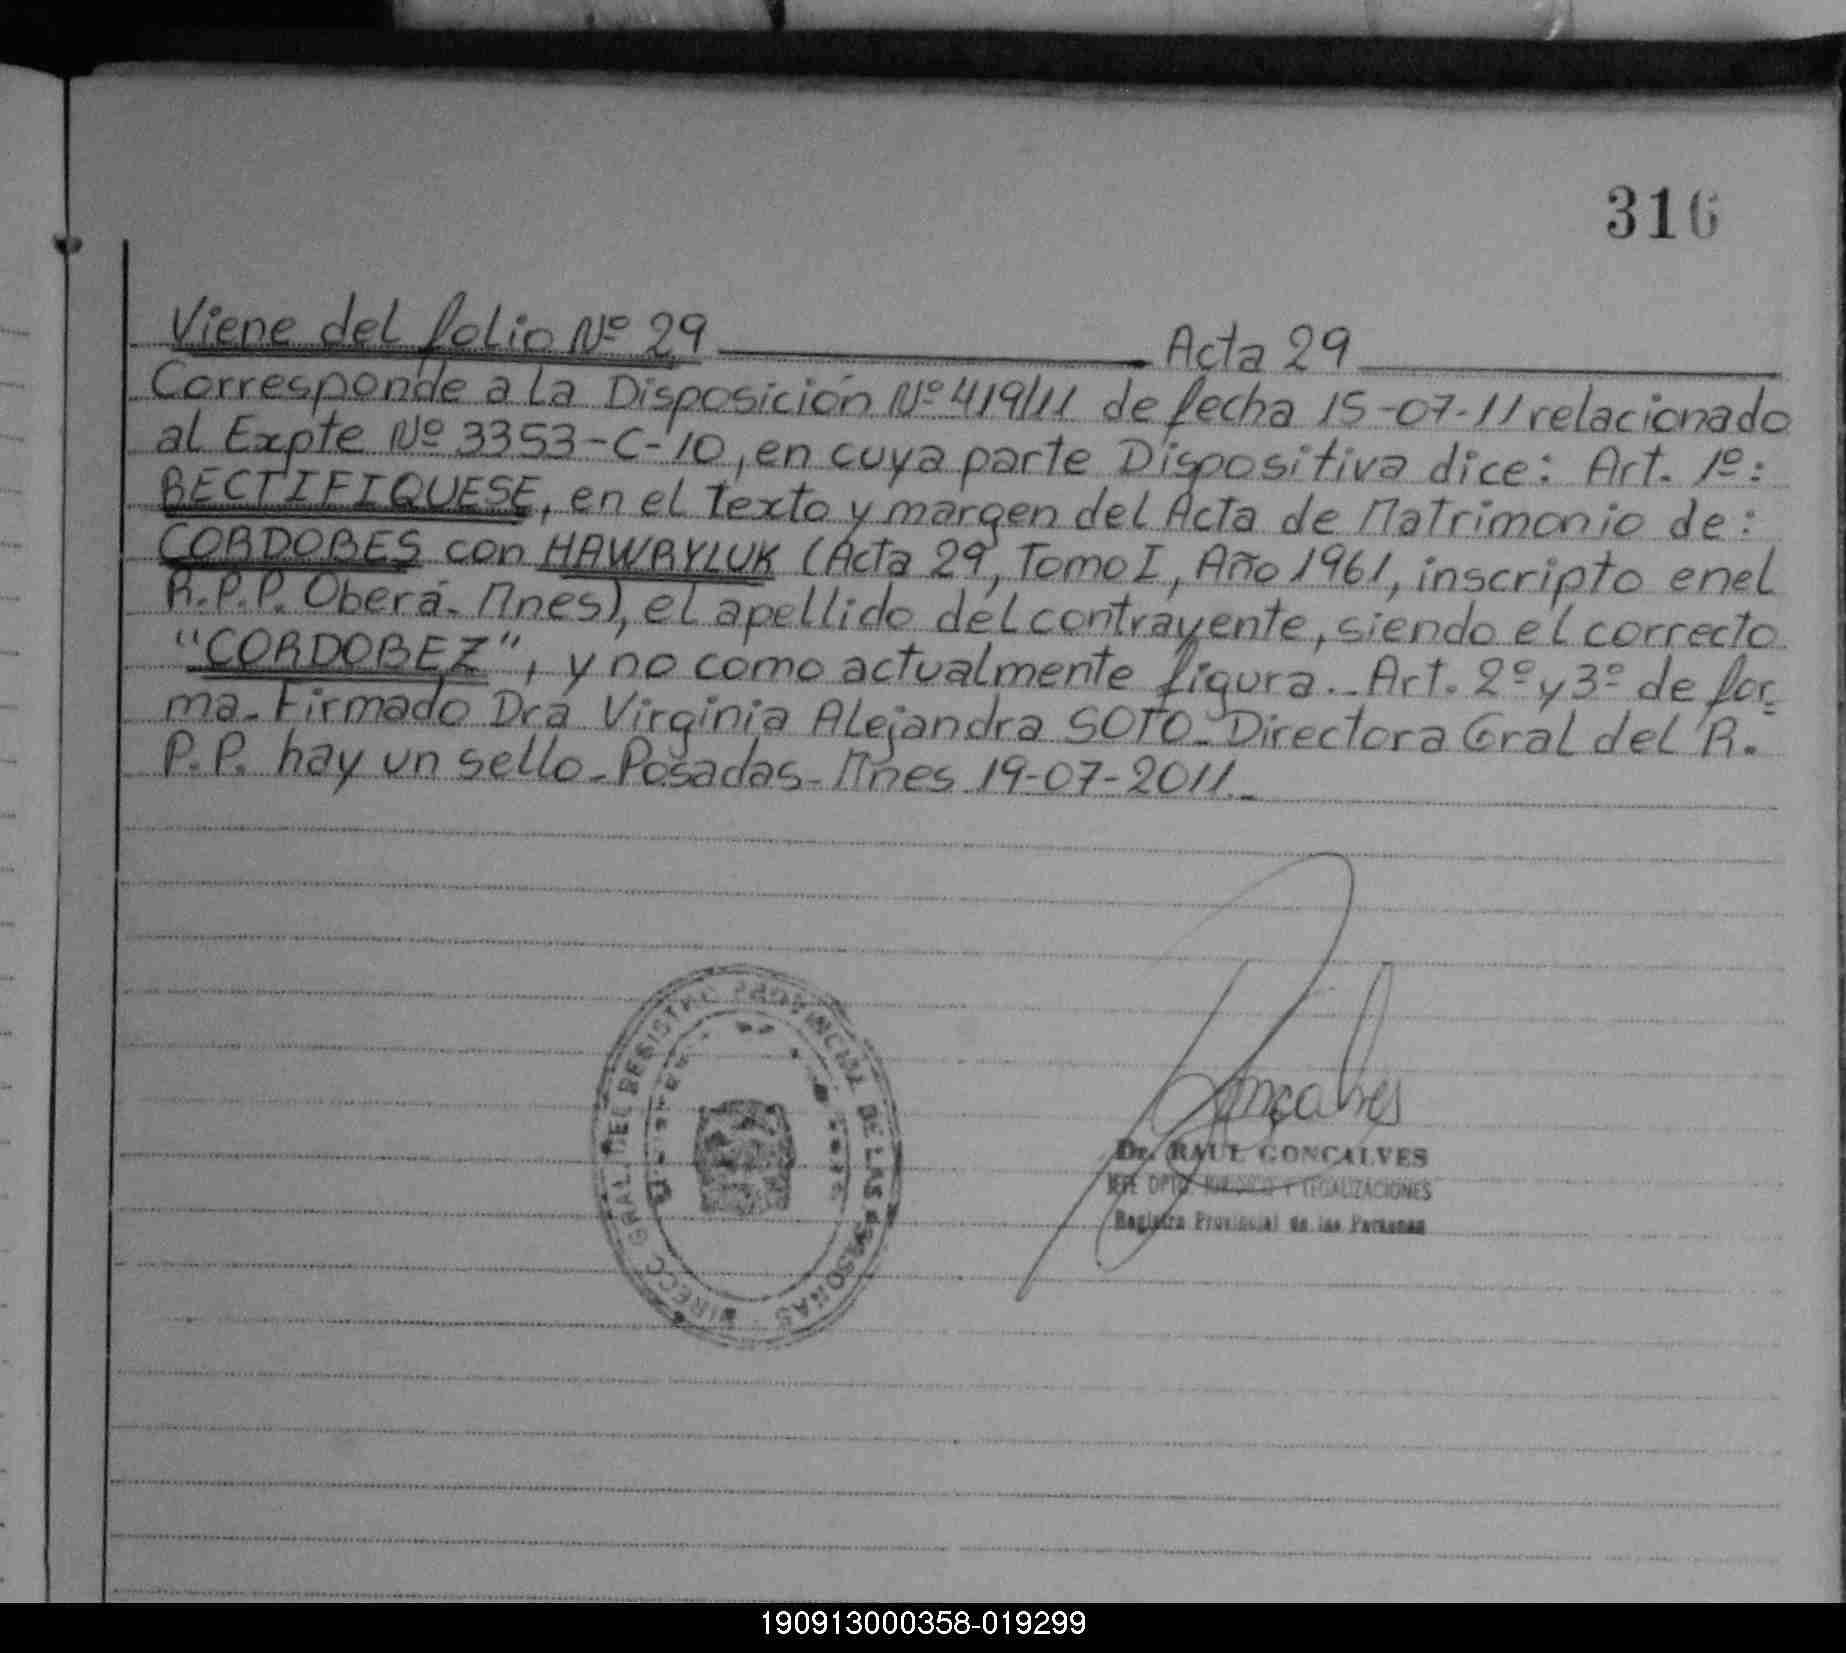 316
Viene del folio Nº 29 Acta 29
Corresponde a la Disposición Nº 419/11 de fecha 15-07-11 relacionado
al Expte Nº 3353-C-'10, en cuya parte Dispositiva dice: Art. 1º:
RECTIFIQUESE, en el Texto y margen del Acta de Matrimonio de:
CORDOBES con HAWRYLUK (Acta 29, Tomo I, Año 1961, inscripto en el
R.P.P. Oberá- Mnes), el apellido del contrayente, siendo el correcto
"CORDOBEZ", y no como actualmente figura.- Art. 2º y 3º de for-
ma- Firmado Dra Virginia Alejandra SOTO- Directora Gral del R.
P.P. hay un sello- Posadas- Mnes 19-07-2011.-
DIRECC. GRAL. DEL REGISTRO PROVINCIAL DE LAS PERSONAS
Goncalves
Dr. RAUL GONCALVES
JEFE DPTO. JURIDICO Y LEGALIZACIONES
Registro Provincial de las Personas
190913000358-019299